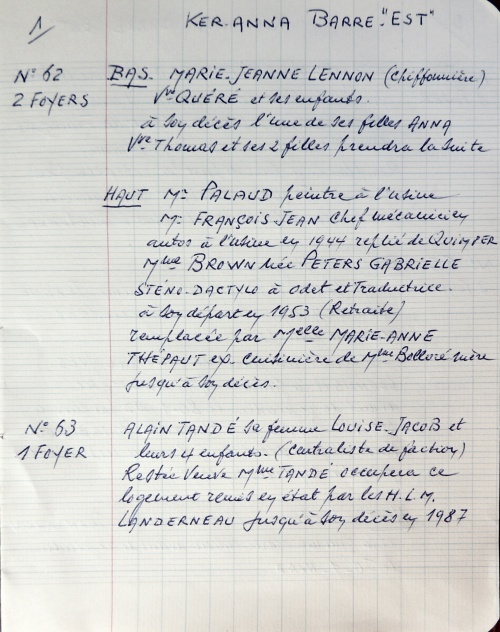 1/
KER-ANNA BARRE "EST"
N° 62 BAS. MARIE-JEANNE LENNON (chiffonnière)
2 FOYERS Vve QUÉRÉ et ses enfants.
à son décès l'une de ses filles ANNA
Vve Thomas et ses 2 filles prendra la suite
HAUT Mr PALAUD peintre à l'usine
Mr FRANÇOIS-JEAN Chef mécanicien
autos à l'usine en 1944 replié de QUIMPER
Mme BROWN née PETERS GABRIELLE
STÉNO-DACTYLO à Odet et Traductrice.
à son départ en 1953 (Retraite)
remplacée par Melle MARIE-ANNE
THÉPAUT ex. Cuisinière de Mme Bolloré mère
jusqu'à son décès.
N° 63 ALAIN TANDÉ sa femme LOUISE-JACOB et
1 FOYER leurs 4 enfants. (Centraliste de faction)
Restée Veuve Mme TANDÉ occupera ce
logement remis en état par les H.L.M.
LANDERNEAU jusqu'à son décès en 1987